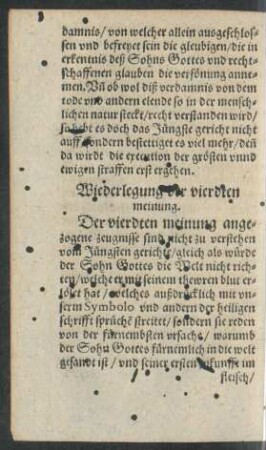 damnis/ von welcher allein ausgeschlos-
sen vnd befreyet sein die gleubigen/ die in
erkentnis deß Sohns Gottes vnd recht-
schaffenen glauben die versönung anne-
men. Vñ ob wol diß verdamnis von dem
tode vnd andern elende so in der mensch-
lichen natur steckt/ recht verstanden wird/
so hebt es doch das Jüngste gericht nicht
auff/ sondern bestettiget es viel mehr/ deñ
da wirdt die execution der grösten vnnd
ewigen straffen erst ergehen.
Wiederlegung der vierdten
meinung.
Der vierdten meinung ange-
zogene zeugnisse sind nicht zu verstehen
vom Jüngsten gerichte/ gleich als würde
der Sohn Gottes die Welt nicht rich-
ten/ welche er mit seinem thewren blut er-
löset hat/ welches ausdrücklich mit vn-
serm Symbolo vnd andern der heiligen
schrifft sprüchē streitet/ sondern sie reden
von der fürnembsten vrsache/ warumb
der Sohn Gottes fürnemlich in die welt
gesandt ist/ vnd seiner ersten zukunfft im
fleisch/